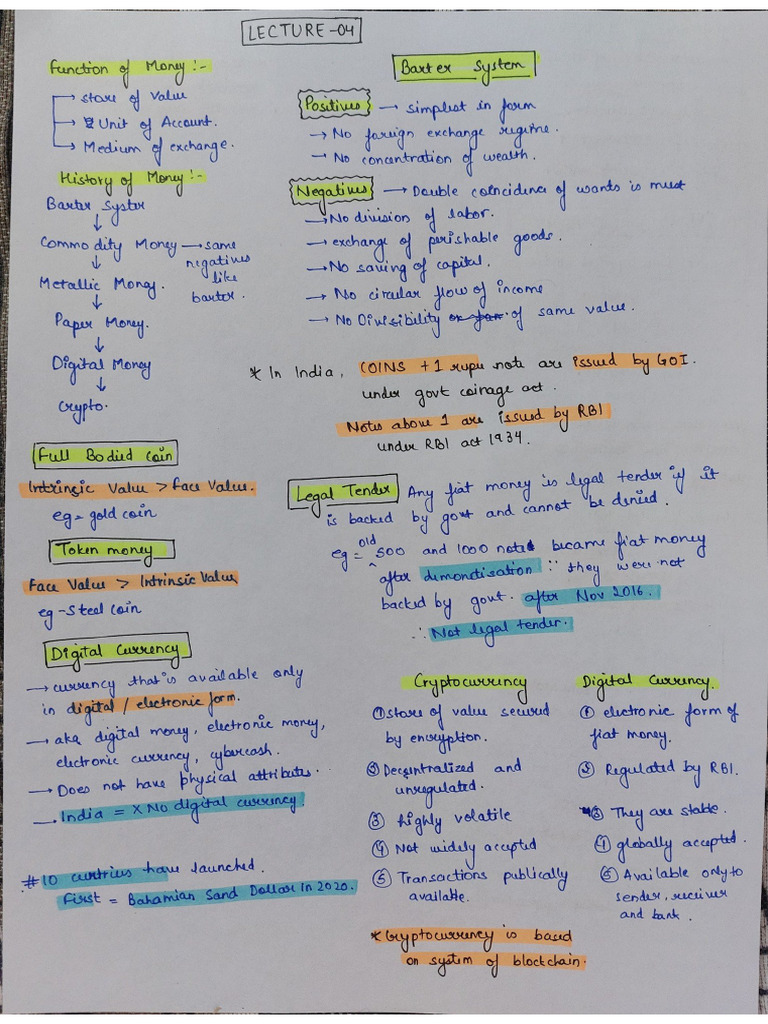 LECTURE-04
Function of Money :-
→ Store of Value
→ Unit of Account.
→ Medium of exchange.
History of Money :-
Barter System
↓
Commodity Money → same
negatives
like
barter.
↓
Metallic Money.
↓
Paper Money.
↓
Digital Money
↓
Crypto.
Full Bodied Coin
Intrinsic Value > Face Value.
eg = gold coin
Token money
Face Value > Intrinsic Value
eg - Steel coin
Digital Currency
→ currency that is available only
in digital / electronic form.
→ aka digital money, electronic money,
electronic currency, cybercash.
→ Does not have physical attributes.
→ India = X No digital currency.
#10 cuntries have launched.
First = Bahamian Sand Dollar in 2020.
Barter System
Positives → simplest in form
→ No foreign exchange regime.
→ No concentration of wealth.
Negatives → Double coincidence of wants is must
→ No division of labor.
→ exchange of perishable goods.
→ No saving of capital.
→ No circular flow of income
→ No Divisibility of same value.
* In India, COINS + 1 rupee note are issued by GOI.
under govt coinage act.
Notes above 1 are issued by RBI
under RBI act 1934.
Legal Tender Any fiat money is legal tender if it
is backed by govt and cannot be denied.
eg = old 500 and 1000 notes became fiat money
after demonetisation ∵ they were not
backed by govt. after Nov 2016.
∴ Not legal tender.
Cryptocurrency
① Store of value secured
by encryption.
② Decentralized and
unregulated.
③ highly volatile
④ Not widely accepted
⑤ Transactions publically
available.
* Cryptocurrency is based
on system of blockchain.
Digital Currency.
① electronic form of
fiat money.
② Regulated by RBI.
③ They are stable.
④ globally accepted.
⑤ Available only to
sender, receiver
and bank.